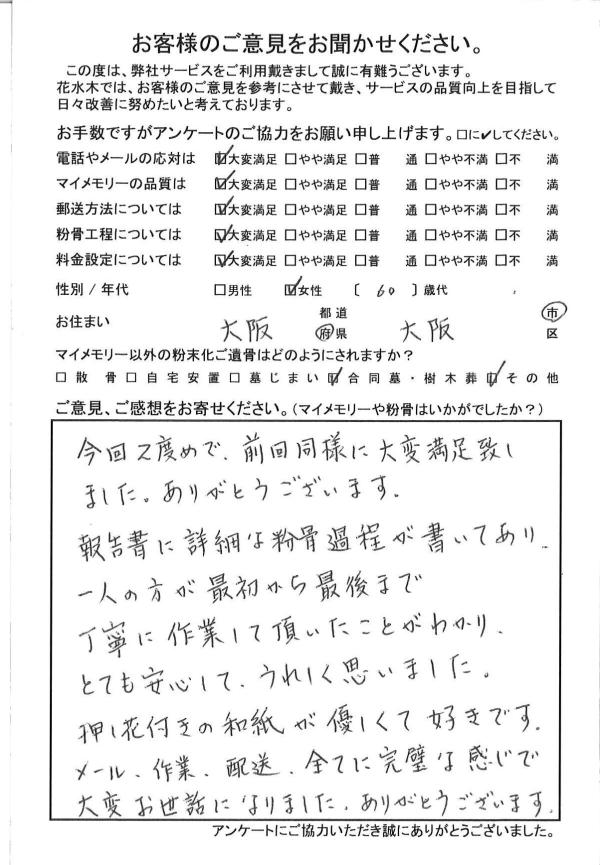 お客様のご意見をお聞かせください。
この度は、弊社サービスをご利用戴きまして誠に有難うございます。
花水木では、お客様のご意見を参考にさせて戴き、サービスの品質向上を目指して
日々改善に努めたいと考えております。
お手数ですがアンケートのご協力をお願い申し上げます。□に✔してください。
電話やメールの応対は ☑大変満足 □やや満足 □普 通 □やや不満 □不 満
マイメモリーの品質は ☑大変満足 □やや満足 □普 通 □やや不満 □不 満
郵送方法については ☑大変満足 □やや満足 □普 通 □やや不満 □不 満
粉骨工程については ☑大変満足 □やや満足 □普 通 □やや不満 □不 満
料金設定については ☑大変満足 □やや満足 □普 通 □やや不満 □不 満
性別 / 年代 □男性 ☑女性 〔 60 〕歳代
お住まい 大阪 都道府県 大阪 市区
マイメモリー以外の粉末化ご遺骨はどのようにされますか？
□散 骨 □自宅安置 □墓じまい ☑合同墓・樹木葬 ☑その他
ご意見、ご感想をお寄せください。（マイメモリーや粉骨はいかがでしたか？）
今回2度めで、前回同様に大変満足致し
ました。ありがとうございます。
報告書に詳細な粉骨過程が書いてあり、
一人の方が最初から最後まで
丁寧に作業して頂いたことがわかり、
とても安心して、うれしく思いました。
押し花付きの和紙が優しくて好きです。
メール、作業、配送、全てに完璧な感じで
大変お世話になりました。ありがとうございます。
アンケートにご協力いただき誠にありがとうございました。